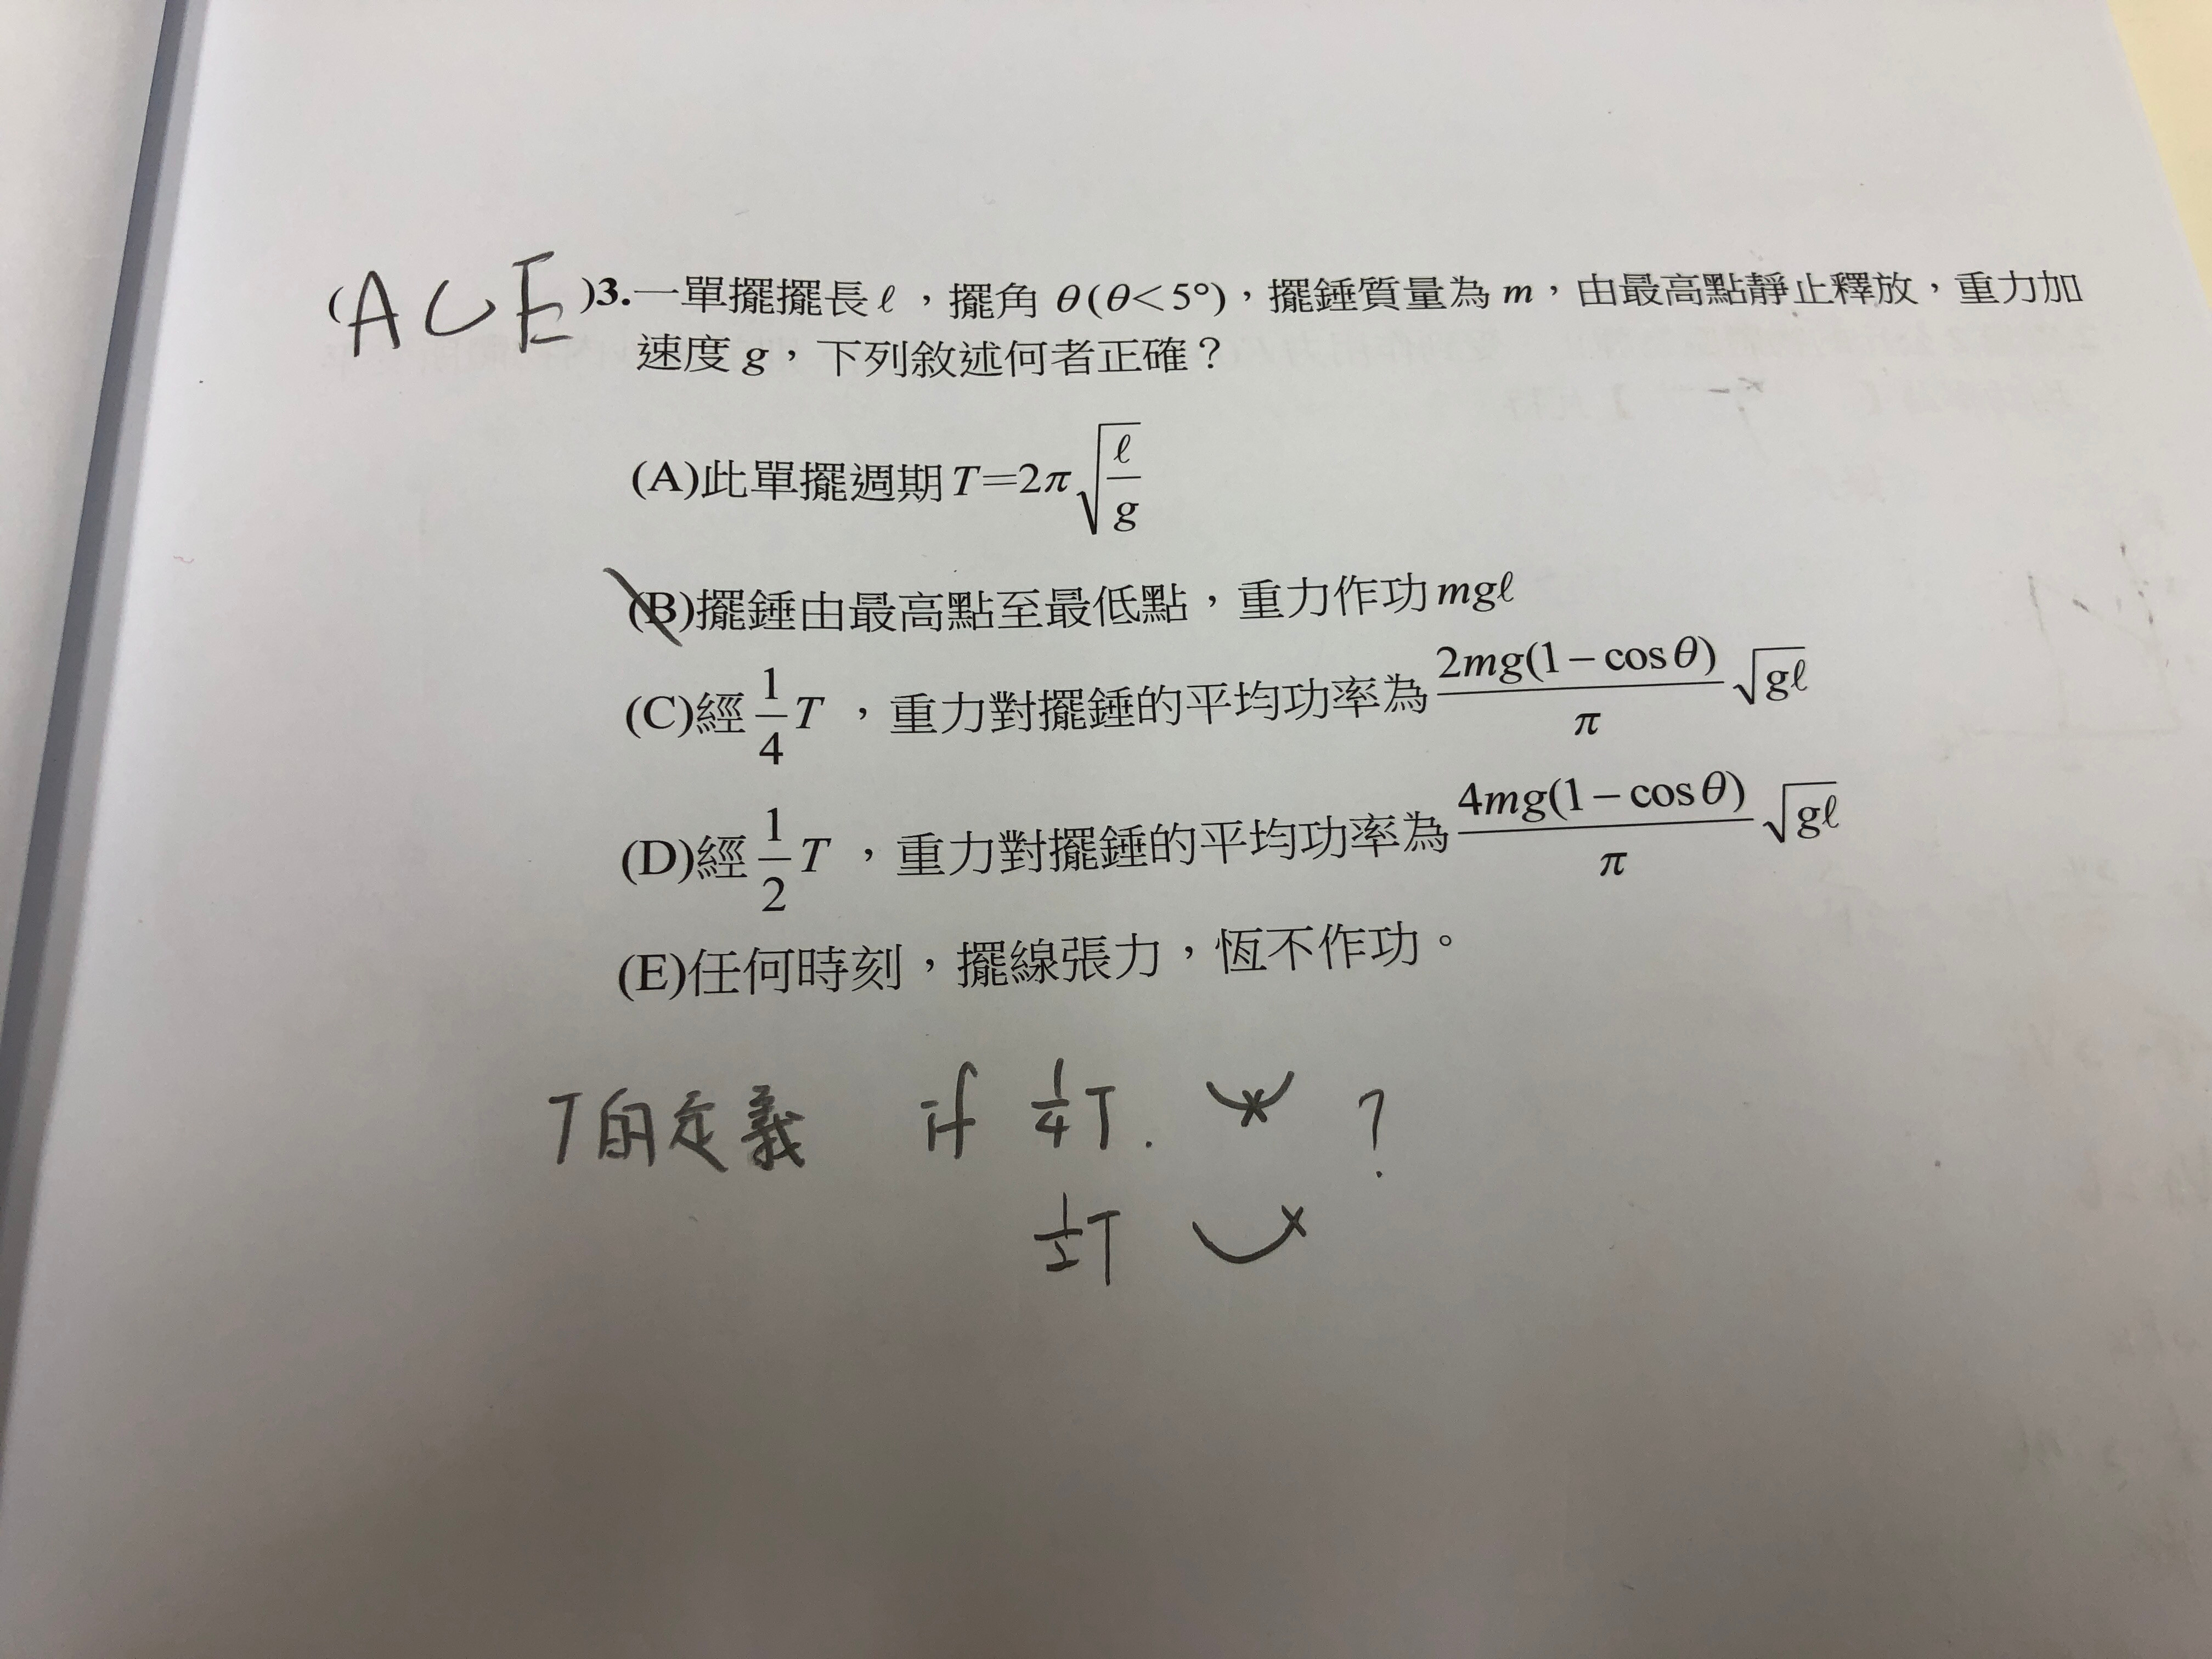 (ACE)3.一單擺擺長ℓ，擺角θ(θ<5°)，擺錘質量為m，由最高點靜止釋放，重力加
速度g，下列敘述何者正確？
(A)此單擺週期T=2π√(ℓ/g)
(B)擺錘由最高點至最低點，重力作功mgℓ
(C)經1/4T，重力對擺錘的平均功率為2mg(1-cosθ)/π√gℓ
(D)經1/2T，重力對擺錘的平均功率為4mg(1-cosθ)/π√gℓ
(E)任何時刻，擺線張力，恆不作功。
T的定義 if 1/4T. ?
1/2T